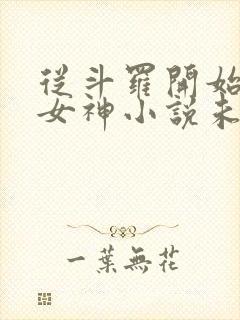 從斗羅開始
女神小說未
一葉無花